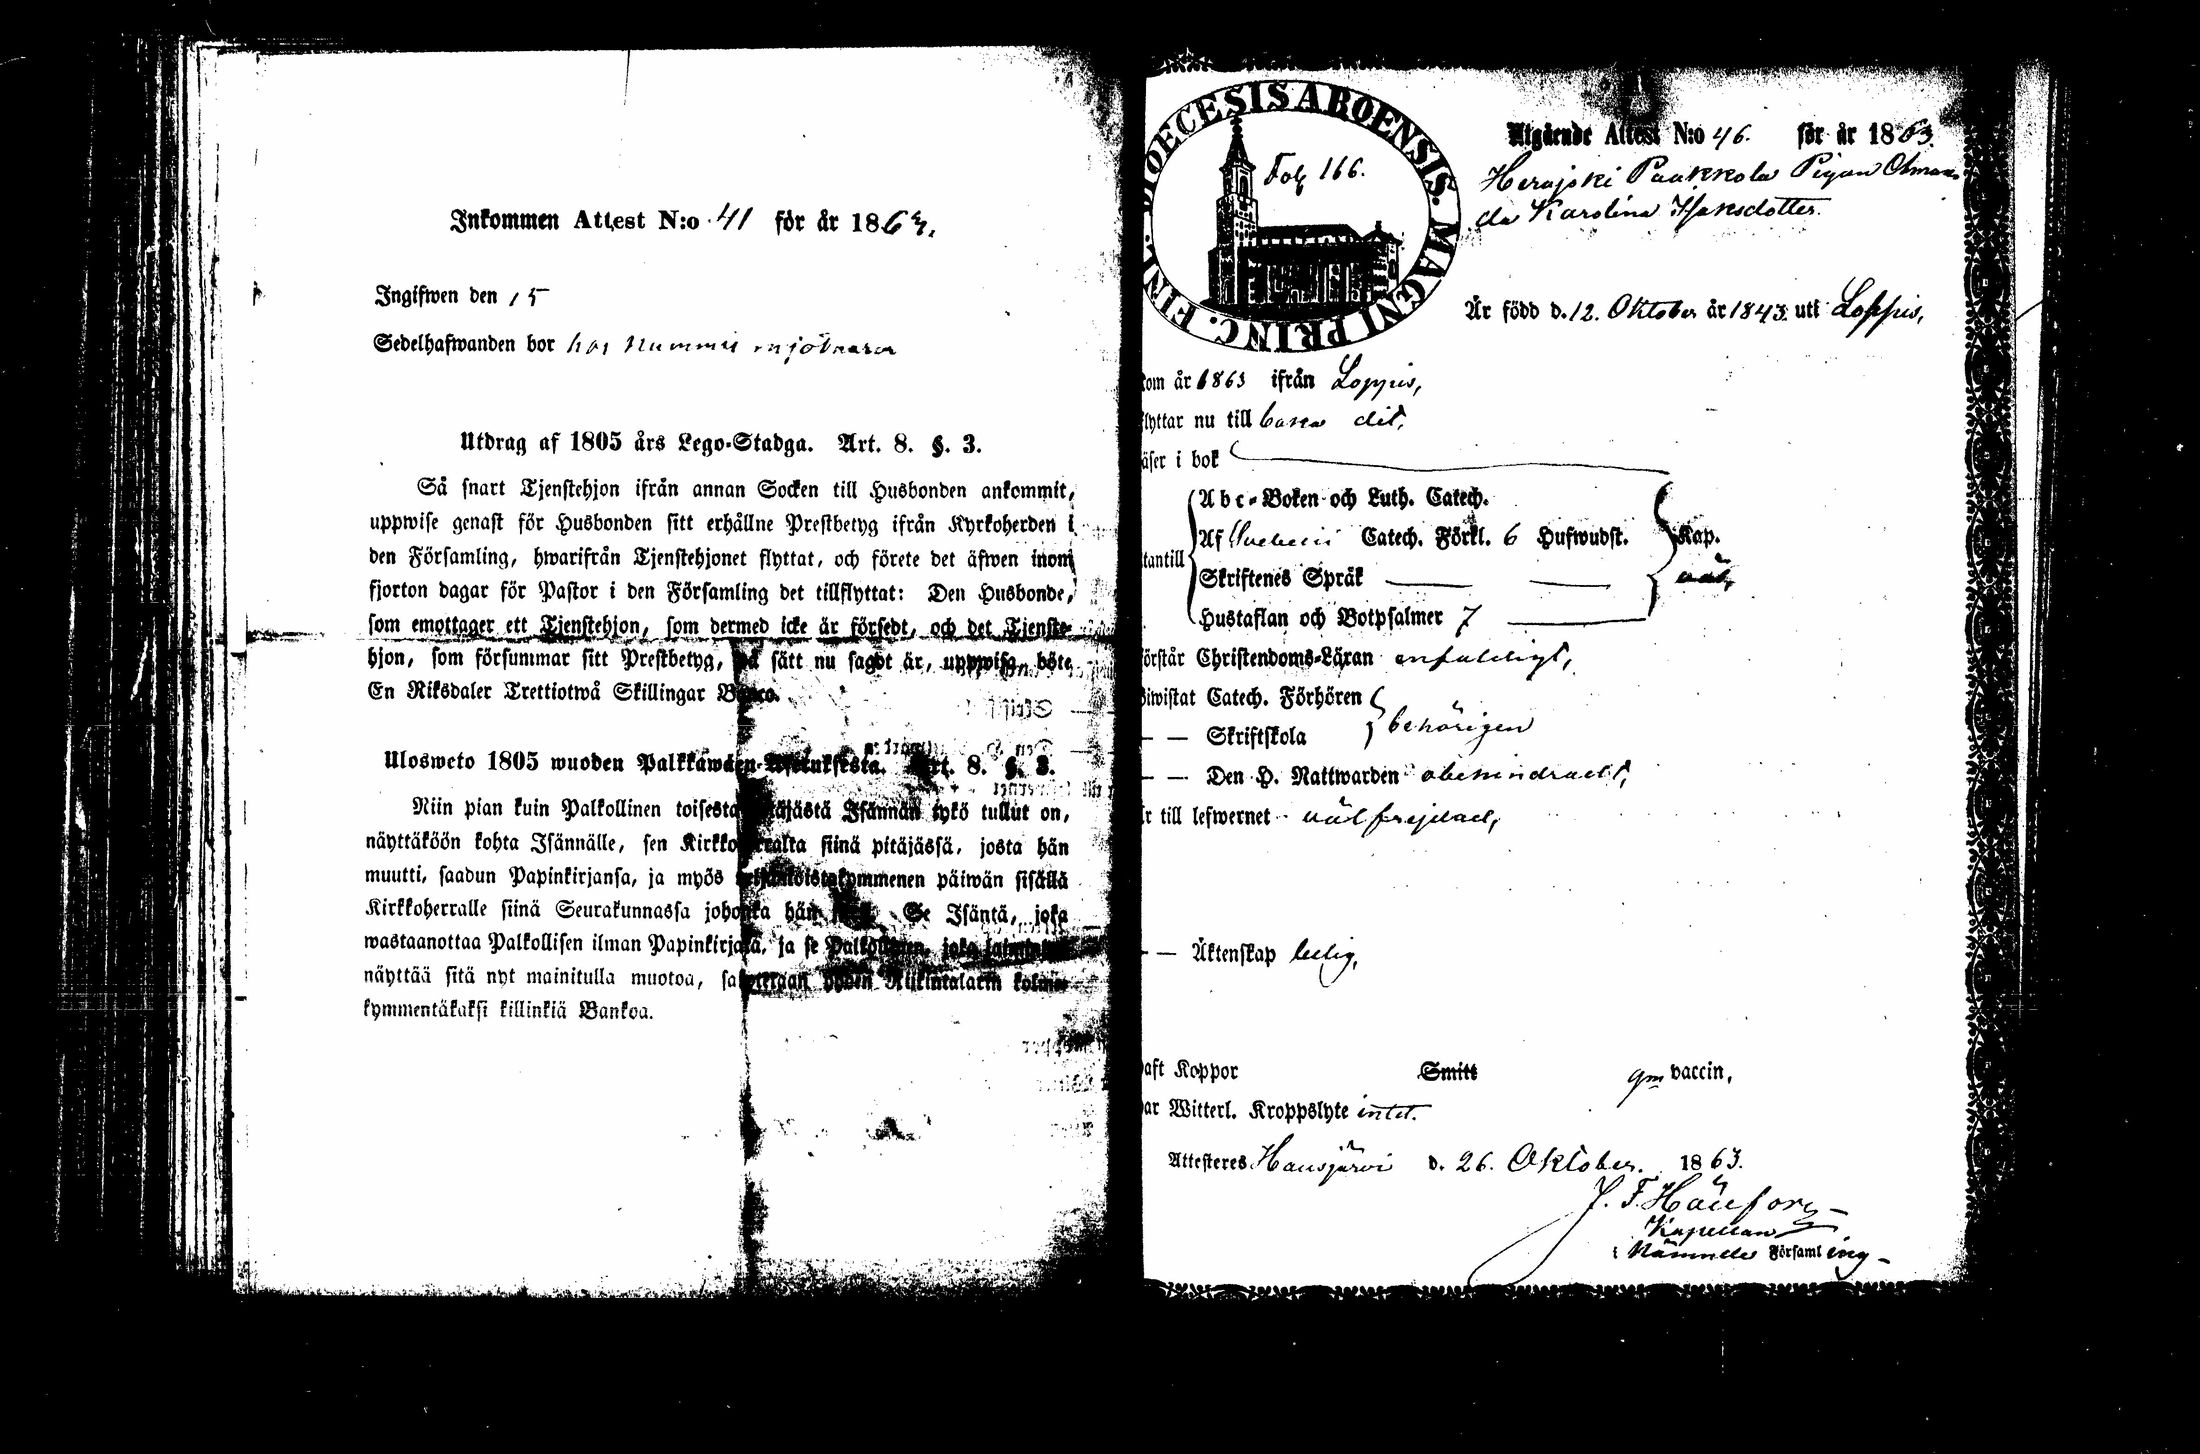 Inkommen Attest N:o 41 för år 1863.
Ingifwen den 15
Sedelhafwanden bor hos Nummis mjölnaren
Utdrag af 1805 års Lego-Stadga. Art. 8. §. 3.
Så snart Tjenstehjon ifrån annan Socken till Husbonden ankommit,
uppwise genast för Husbonden sitt erhållne Prestbetyg ifrån Kyrkoherden i
den Församling, hwarifrån Tjenstehjonet flyttat, och förete det äfwen inom
fjorton dagar för Pastor i den Församling det tillflyttat: Den Husbonde,
som emottager ett Tjenstehjon, som dermed icke är försedt, och det Tjenste-
hjon, som försummar sitt Prestbetyg, på sätt nu sagdt är, uppwisa, böte
En Riksdaler Trettiotwå Skillingar Banco.
Ulosweto 1805 wuoden Palkkawäen-Asetuksesta. Art. 8. §. 3.
Niin pian kuin Palkollinen toisesta pitäjästä Isännän tykö tullut on,
näyttäköön kohta Isännälle, sen Kirkkoherralta siinä pitäjässä, josta hän
muutti, saadun Papinkirjansa, ja myös neljäntoistakymmenen päiwän sisällä
Kirkkoherralle siinä Seurakunnassa johonka hän Se Isäntä, joka
wastaanottaa Palkollisen ilman Papinkirjata, ja se Palkollinen, joka
näyttää sitä nyt mainitulla muotoa, yhden Riikintalarin kolme
kymmentäkaksi killinkiä Bankoa.
DIOECESIS ABOENSIS. MAGNI PRINC. FINL.
Fol 166.
Utgående Attest N:o 46. för år 1863.
Herajoki Paakkola Pigan Aman-
da Karolina Isaksdotter.
Är född d. 12. Oktober år 1843. uti Loppis,
kom år 1863 ifrån Loppis,
flyttar nu till bara dit,
läser i bok
Abc-Boken och Luth. Catech.
Af Svebelii Catech. Förkl. 6 Hufwudst.
Kap.
utantill
Skriftenes Språk
väl,
Hustaflan och Botpsalmer 7
förstår Christendoms-Läran enfaldigt,
biwistat Catech. Förhören
— — Skriftskola behörigen
— — Den H. Nattwarden obehindradt,
är till lefwernet väl frejdad,
— — Äktenskap ledig,
haft Koppor Smitt gm vaccin,
har Witterl. Kroppslyte intet.
Attesteres Hausjärvi d. 26. Oktober. 1863.
J. F.
Kapellan
i Nämnde Församling